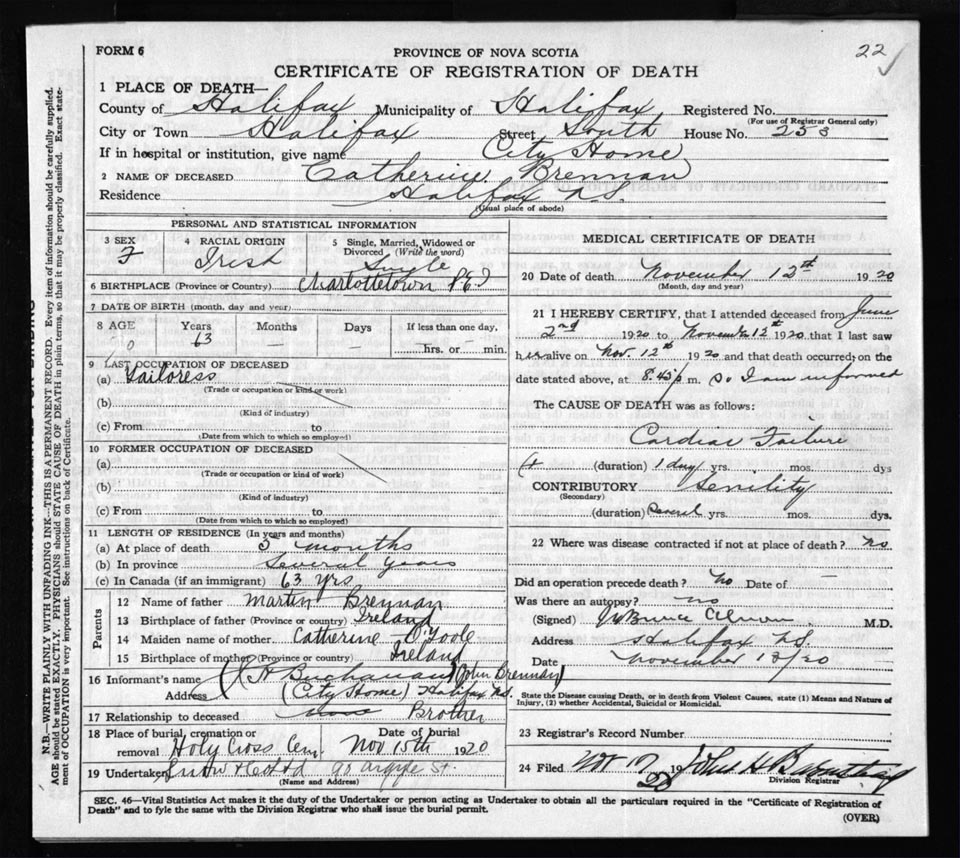 FORM 6
PROVINCE OF NOVA SCOTIA
22
CERTIFICATE OF REGISTRATION OF DEATH
1 PLACE OF DEATH—
County of Halifax Municipality of Halifax Registered No.
(For use of Registrar General only)
City or Town Halifax Street South House No. 253
If in hospital or institution, give name City Home
2 NAME OF DECEASED Catherine Brennan
Residence Halifax N.S.
(Usual place of abode)
PERSONAL AND STATISTICAL INFORMATION
3 SEX F
4 RACIAL ORIGIN Irish
5 Single, Married, Widowed or Divorced (Write the word) Single
6 BIRTHPLACE (Province or Country) Charlottetown P.E.I
7 DATE OF BIRTH (month, day and year)
8 AGE Years 63 Months — Days — If less than one day, hrs. or — min.
9 LAST OCCUPATION OF DECEASED
(a) Tailoress
(Trade or occupation or kind of work)
(b)
(Kind of industry)
(c) From to
(Date from which to which so employed)
10 FORMER OCCUPATION OF DECEASED
(a)
(Trade or occupation or kind of work)
(b)
(Kind of industry)
(c) From to
(Date from which to which so employed)
11 LENGTH OF RESIDENCE (In years and months)
(a) At place of death 5 months
(b) In province Several Years
(c) In Canada (if an immigrant) 63 yrs
Parents
12 Name of father Martin Brennan
13 Birthplace of father (Province or country) Ireland
14 Maiden name of mother Catherine O'Toole
15 Birthplace of mother (Province or country) Ireland
16 Informant's name Buchanan (John Brennan)
Address (City Home) Halifax N.S.
17 Relationship to deceased Brother
18 Place of burial, cremation or removal Holy Cross Cem. Date of burial Nov 15th 1920
19 Undertaker Snow & Co Ltd 90 Argyle St.
(Name and Address)
MEDICAL CERTIFICATE OF DEATH
20 Date of death November 12th 1920
(Month, day and year)
21 I HEREBY CERTIFY, that I attended deceased from June
2nd 1920 to November 12th 1920 that I last saw
her alive on Nov. 12th 1920 and that death occurred, on the
date stated above, at 8.45 p m. so I am informed
The CAUSE OF DEATH was as follows:
Cardiac Failure
(duration) 1 day yrs. mos. dys
CONTRIBUTORY Senility
(Secondary)
(duration) Several yrs. mos. dys.
22 Where was disease contracted if not at place of death? no
Did an operation precede death? no Date of —
Was there an autopsy? no
(Signed) M.D.
Address Halifax N.S.
Date November 13/20
State the Disease causing Death, or in death from Violent Causes, state (1) Means and Nature of
Injury, (2) whether Accidental, Suicidal or Homicidal.
23 Registrar's Record Number
24 Filed Nov 17 1920 John H
Division Registrar
SEC. 46—Vital Statistics Act makes it the duty of the Undertaker or person acting as Undertaker to obtain all the particulars required in the "Certificate of Registration of
Death" and to fyle the same with the Division Registrar who shall issue the burial permit.
(OVER)
N.B.—WRITE PLAINLY WITH UNFADING INK—THIS IS A PERMANENT RECORD. Every item of information should be carefully supplied.
AGE should be stated EXACTLY. PHYSICIANS should STATE CAUSE OF DEATH in plain terms, so that it may be properly classified. Exact state-
ment of OCCUPATION is very important. See instructions on back of Certificate.